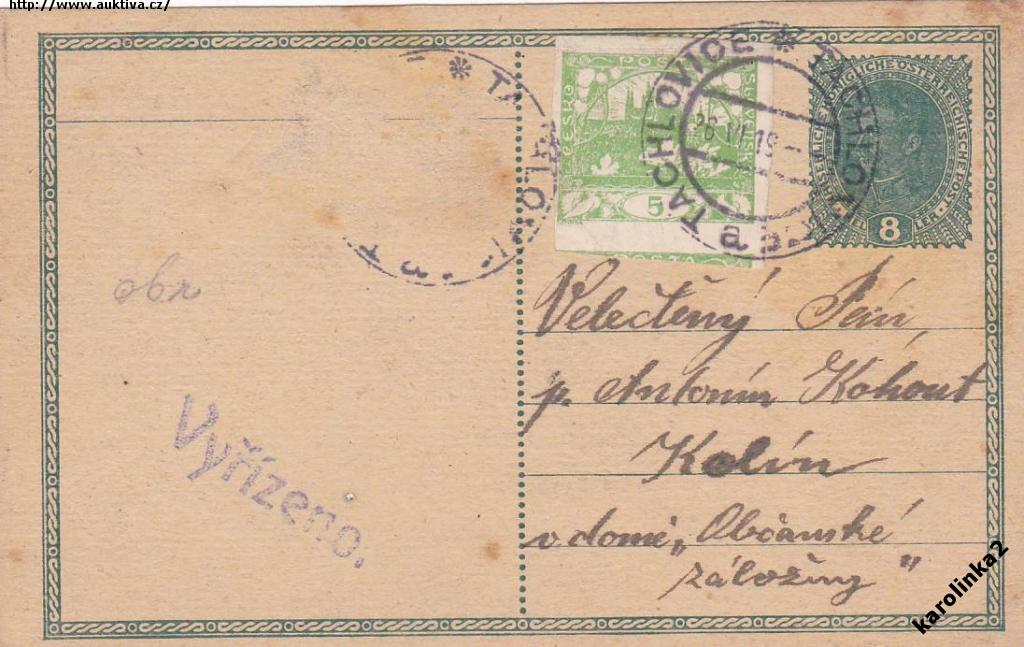 http://www.auktiva.cz/
POŠTA
ČESKO
SLOVENSKÁ
5
TACHLOVICE * TACHLOVICE
VII 19
a
KAISERLICHE KÖNIGLICHE ÖSTERREICHISCHE POST
8
obr
Vyřízeno.
Velectěný Pán
p. Antonín Kohout
Kolín
v domě „Občanské
záložny“
karolinka2